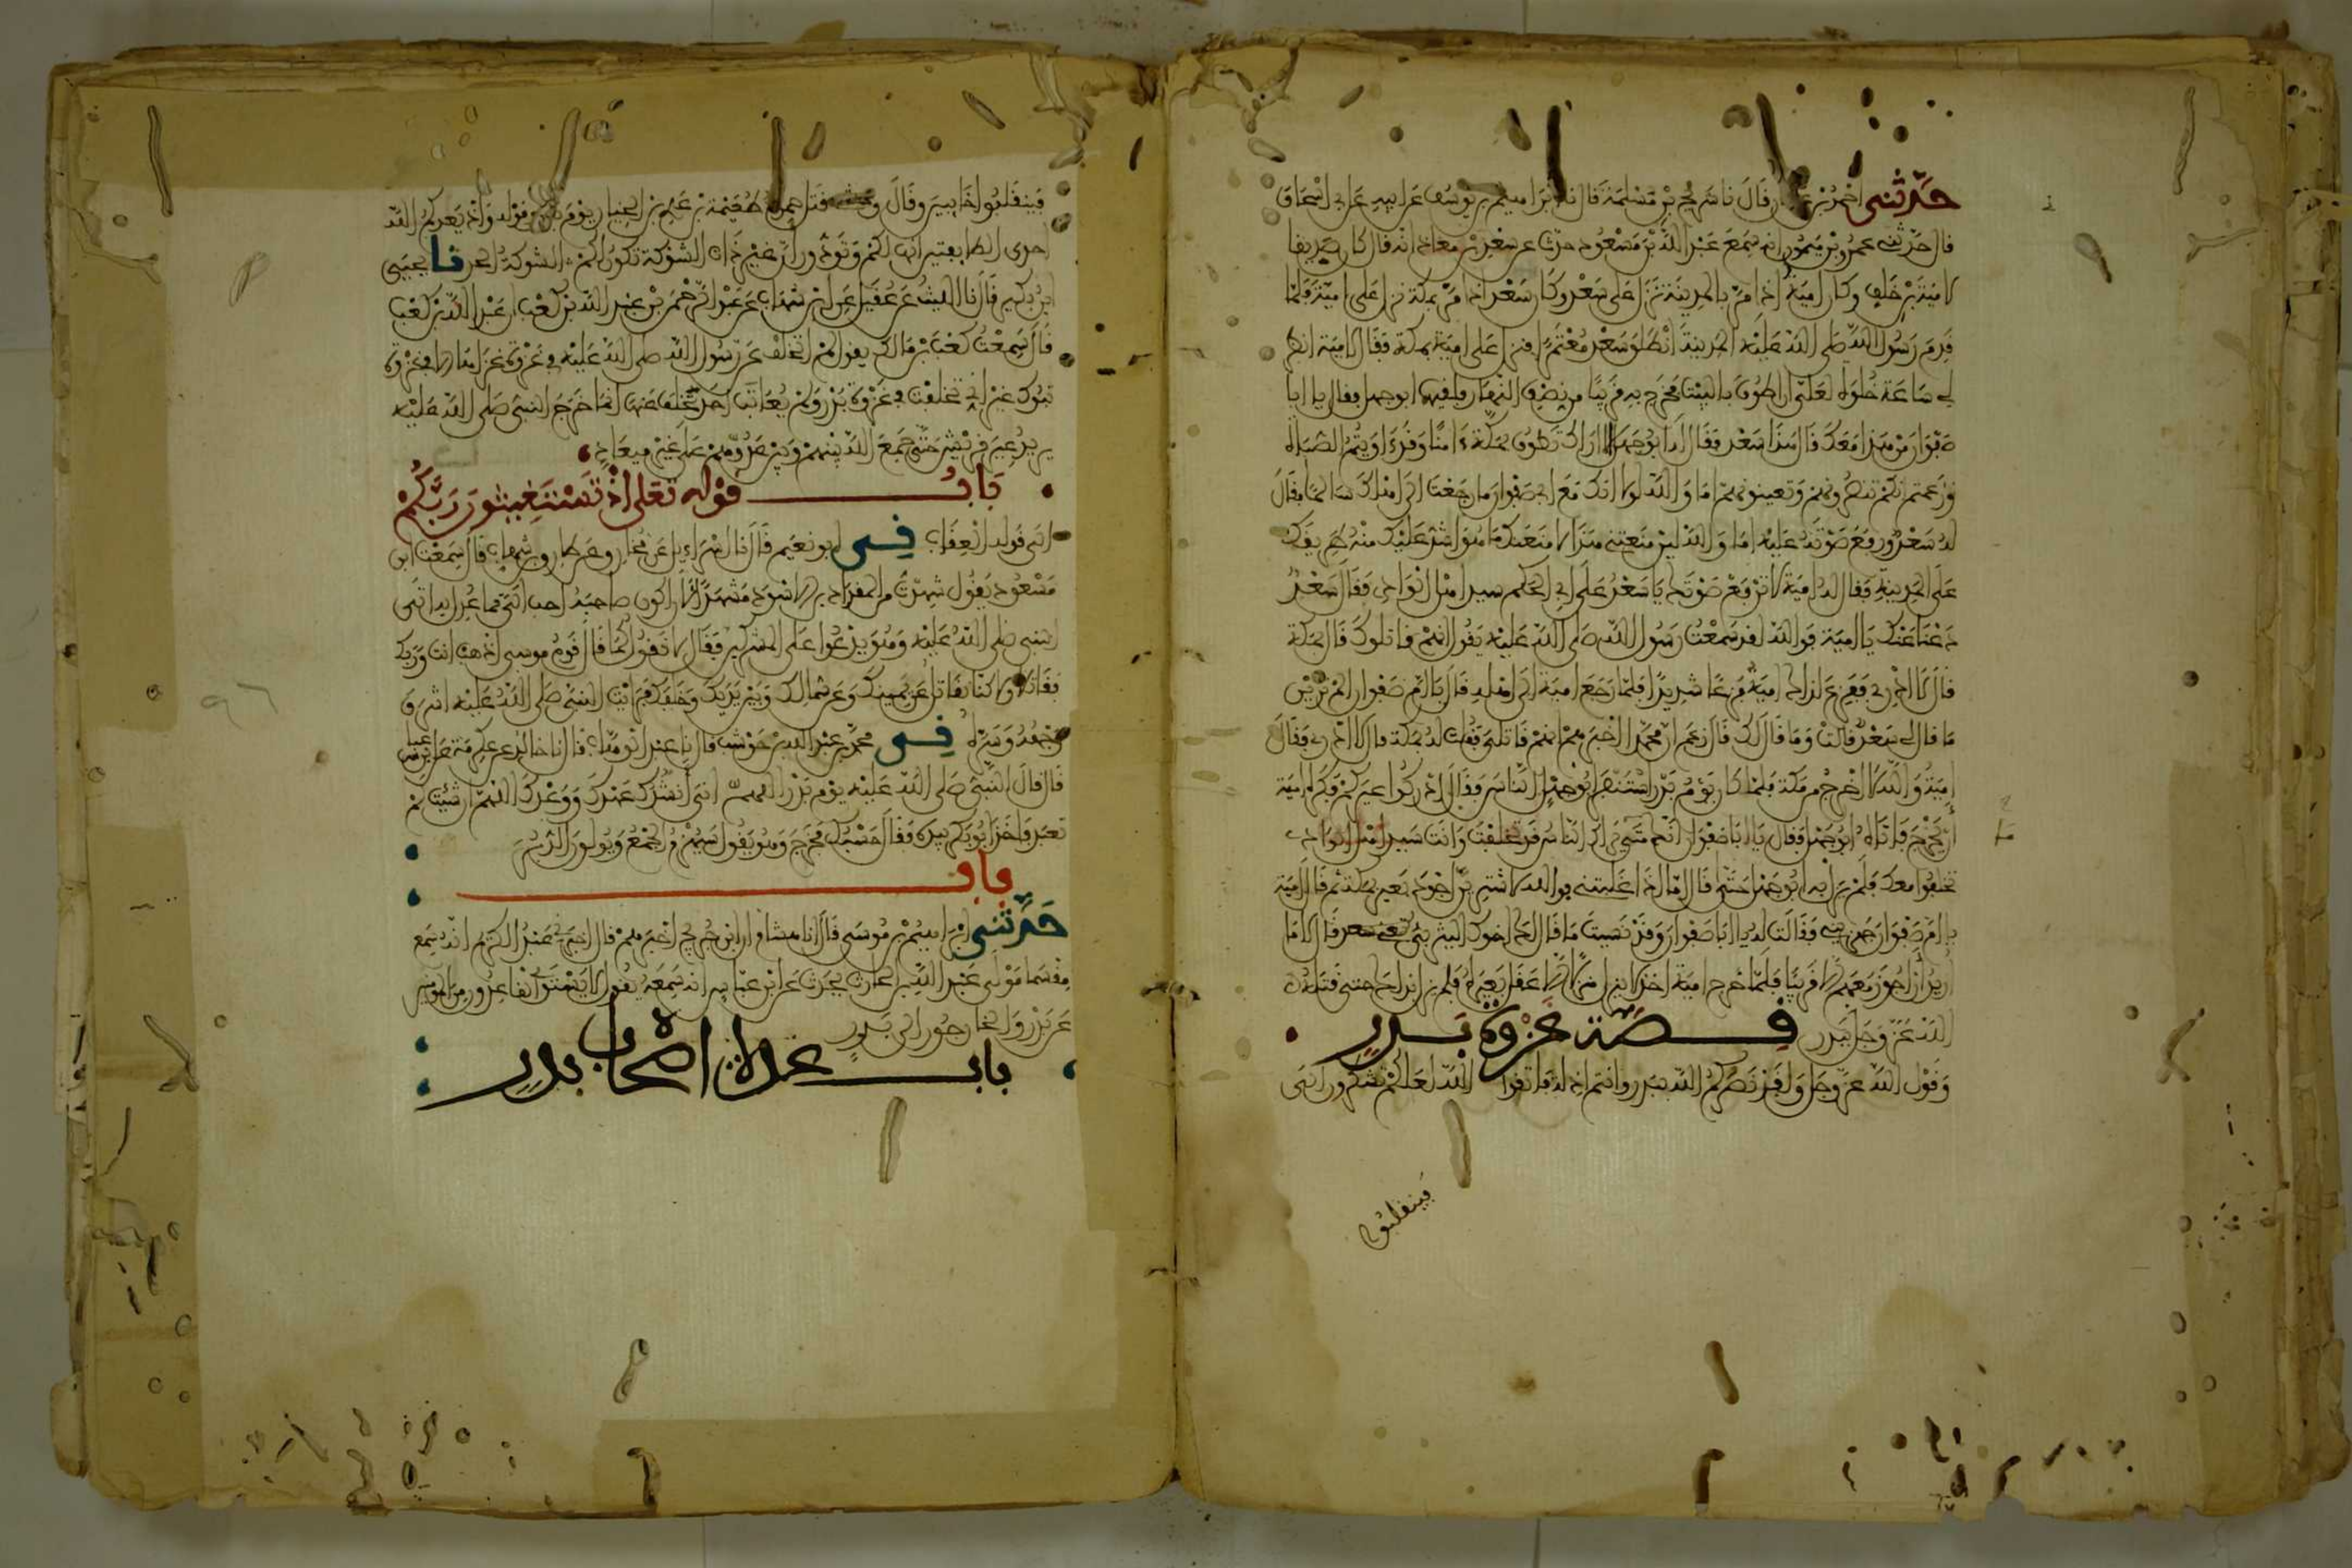 حَدَّثَنِي أحْمَدُ بْنُ عثمان قَالَ نا شريح بْنُ مَسْلَمَةَ قَالَ نا إبراهيم بن يوسف عن أبيه عن أبي إسحاق
قال حدّثني عمرو بن ميمون انه سمع عبد الله بن مسعود حدّث عن سعد بن معاذ انه قال كان صديقا
لامية بن خلف وكان امية إذا مرّ بالمدينة نزل على سعد وكان سعد اذا مرّ بمكة نزل على امية فلمّا
قدم رسول الله صلى الله عليه المدينة انطلق سعد معتمرا فنزل على امية بمكة فقال لامية انظر
لي ساعة خلوة لعلّي ان اطوف بالبيت فخرج به قريبا من نصف النهار فلقيهما ابو جهل فقال يا ابا
صفوان من هذا معك قال هذا سعد فقال له ابو جهل الا اراك تطوف بمكة ءامنا وقد ءاويتم الصباة
وزعمتم انكم تنصرونهم وتعينونهم اما والله لولا انك مع ابي صفوان ما رجعت الى اهلك سالما فقال
له سعد ورفع صوته عليه اما والله لين منعتني هذا لامنعنك ما هو اشد عليك منه طريقك
على المدينة فقال له امية لا ترفع صوتك يا سعد على ابي الحكم سيد اهل الوادي فقال سعد
دعنا عنك يا امية فوالله لقد سمعت رسول الله صلى الله عليه يقول انهم قاتلوك قال بمكة
قال لا ادري ففزع لذلك امية فزعا شديدا فلمّا رجع امية الى اهله قال يا ام صفوان الم ترين
ما قال لي سعد قالت وما قال لك قال زعم ان محمدا اخبرهم انهم قاتليّ فقلت له بمكة قال لا ادري فقال
امية والله لا اخرج من مكة فلما كان يوم بدر استنفر ابو جهل الناس فقال ادركوا عيركم فكره امية
ان يخرج فاتاه ابو جهل فقال يا ابا صفوان انك متى يراك الناس قد تخلفت وانت سيد اهل الوادي
تخلفوا معك فلم يزل به ابو جهل حتى قال امّا اذا غلبتني فوالله لاشترين اجود بعير بمكة ثم قال امية
يا ام صفوان جهزيني فقالت له يا ابا صفوان وقد نسيت ما قال لك اخوك اليثربي قال لا ما
اريد ان اجوز معهم الا قريبا فلمّا خرج امية اخذ لا ينزل منزلا الا عقل بعيره فلم يزل بذلك حتى قتله
الله عز وجل ببدر قصة غزوة بدر
وقول الله عز وجل ولقد نصركم الله ببدر وانتم اذلة فاتقوا الله لعلكم تشكرون الى
فينقلبوا
فينقلبوا خايبين وقال وحشي قتل حمزة طعيمة بن عدي بن الخيار يوم بدر وقوله واذ يعدكم الله
احدى الطايفتين انها لكم وتودون ان غير ذات الشوكة تكون لكم الشوكة الحد نا يحيى
ابن بكير قال نا الليث عن عقيل عن ابن شهاب عن عبد الرحمن بن عبد الله بن كعب ان عبد الله بن كعب
قال سمعت كعب بن مالك يقول لم اتخلف عن رسول الله صلى الله عليه في غزوة غزاها الا في غزوة
تبوك غير اني تخلفت في غزوة بدر ولم يعاتب احد تخلف عنها انما خرج النبي صلى الله عليه
يريد عير قريش حتى جمع الله بينهم وبين عدوهم على غير ميعاد
باب قوله تعلى إذ تستغيثون ربكم
الى قوله العقاب في ابو نعيم قال نا إسراءيل عن مخارق عن طارق بن شهاب قال سمعت ابن
مسعود يقول شهدت من المقداد بن الاسود مشهدا لان اكون صاحبه احب الي مما عدل به اتى
النبي صلى الله عليه وهو يدعوا على المشركين فقال لا نقول كما قال قوم موسى اذهب انت وربك
فقاتلا ولاكنا نقاتل عن يمينك وعن شمالك وبين يديك وخلفك فرايت النبي صلى الله عليه اشرق
وجهه وسره في محمد بن عبد الله بن حوشب قال نا عبد الوهاب قال نا خالد عن عكرمة عن ابن عباس
قال قال النبي صلى الله عليه يوم بدر اللهم اني انشدك عهدك ووعدك اللهم ان شيت لم
تعبد فاخذ ابو بكر بيده فقال حسبك فخرج وهو يقول سيهزم الجمع ويولون الدبر
باب
حَدَّثَنِي ابراهيم بن موسى قال انا هشام ان ابن جريج اخبرهم قال اخبرني عبد الكريم انه سمع
مقسما مولى عبد الله بن الحارث يحدث عن ابن عباس انه سمعه يقول لا يستوي القاعدون من المومنين
عن بدر والخارجون الى بدر
باب عدة اصحاب بدر